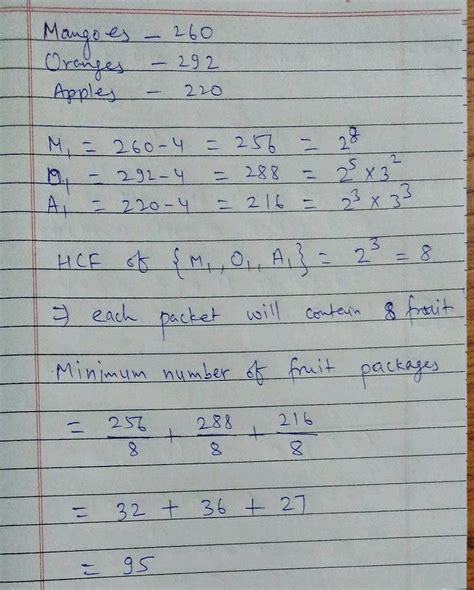 Mangoes – 260
Oranges – 292
Apples – 220
M₁ = 260-4 = 256 = 2⁸
O₁ = 292-4 = 288 = 2⁵ × 3²
A₁ = 220-4 = 216 = 2³ × 3³
HCF of {M₁, O₁, A₁} = 2³ = 8
⇒ each packet will contain 8 fruit
Minimum number of fruit packages
= 256/8 + 288/8 + 216/8
= 32 + 36 + 27
= 95